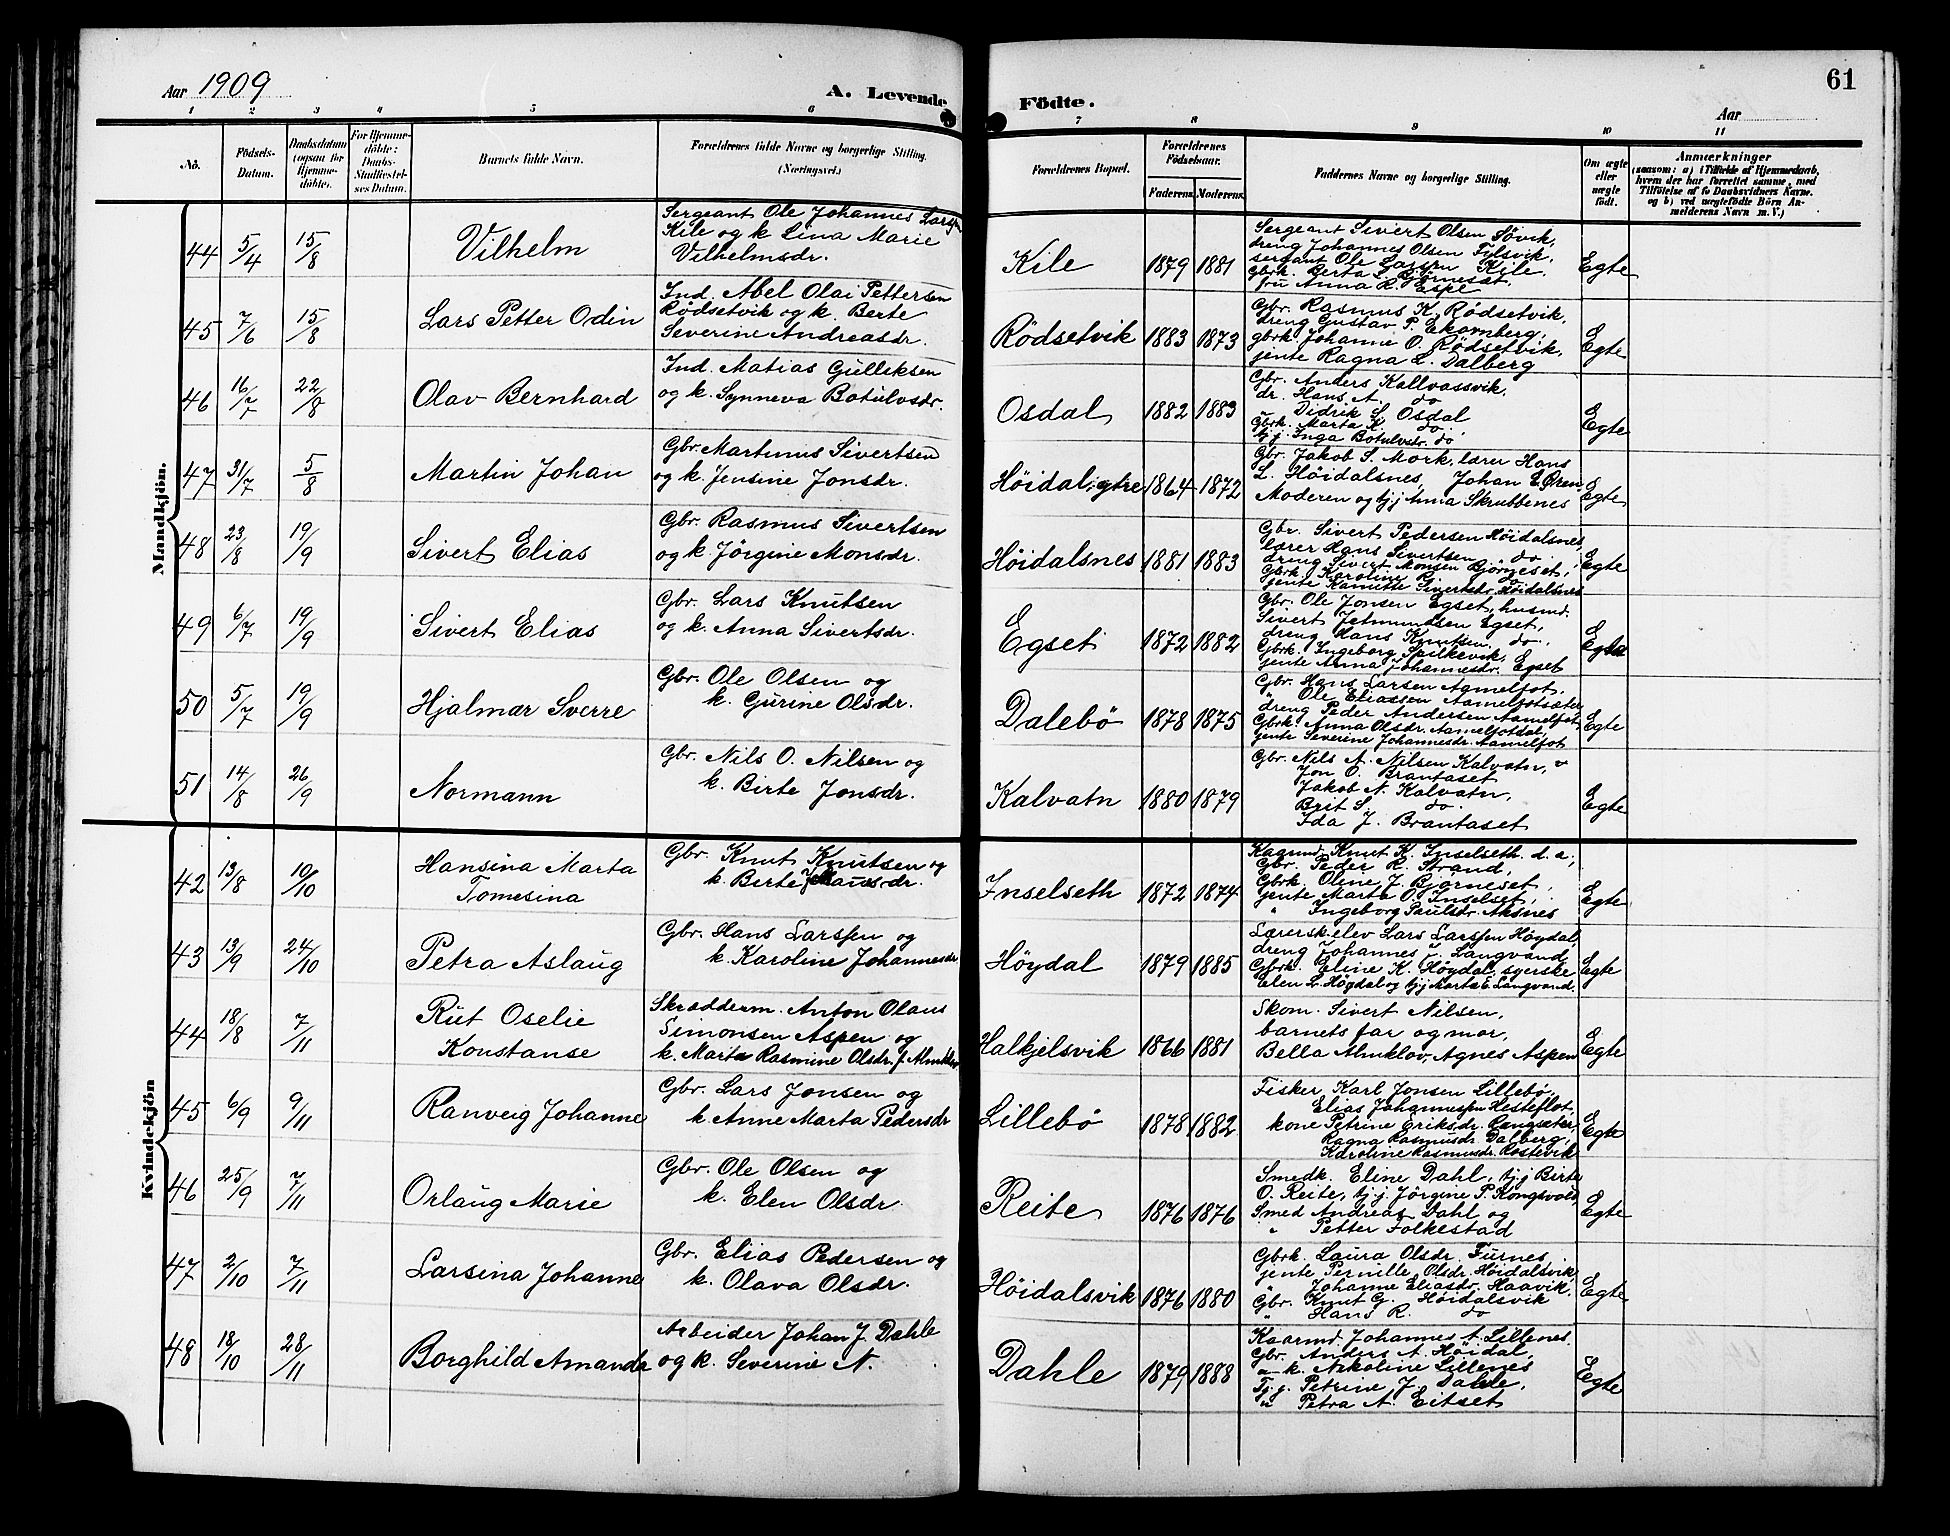 Aar 1909
A. Levende Födte.
61
Aar
1 2 3 4 5 6 7 8 9 10 11
No.
Födsels-Datum.
Daabsdatum (ogsaa for Hjemme-döbte).
For Hjemme-döbte: Daabs-Stadfæstel-ses Datum.
Barnets fulde Navn.
Forældrenes fulde Navne og borgerlige Stilling. (Næringsvei.)
Forældrenes Bopæl.
Forældrenes Födselsaar.
Faderens. Moderens.
Faddernes Navne og borgerlige Stilling.
Om ægte eller uægte födt.
Anmærkninger
(saasom: a) i Tilfælde af Hjemmedaab,
hvem der har forrettet samme, med
Tilföielse af to Daabsvidners Navne.
og b) ved uægtefödte Börn An-
melderens Navn m. V.)
Mandkjön.
44 5/4 15/8 Vilhelm
Sergeant Ole Johannes Larsen
Kile og k Lina Marie
Vilhelmsdr.
Kile 1879 1881
Sergeant Sivert Olsen Søvik,
dreng Johannes Olsen Fylsvik,
sergeant Ole Larsen Kile.
Gbrk. Berta L. Bjørneset.
fru Anna R. Espe
Egte
45 7/6 15/8 Lars Petter Odin
Ind. Abel Olai Pettersen
Rødsetvik og k. Berte
Severine Andreasdr.
Rödsetvik 1883 1873
Gbr. Rasmus K. Rødsetvik,
dreng Gustav P. Ekornberg,
gbrk. Johanne O. Rødsetvik,
jente Ragna L. Dalberg
Egte
46 16/7 22/8 Olav Bernhard
Ind. Matias Gulliksen
og k. Synneva Botulvsdr.
Osdal 1882 1883
Gbr. Anders Kallvassvik.
dr. Hans A. do
" Didrik S. Osdal
Gbrk. Marta K. do.
tj.j. Inga Botulvsdr. do
Egte
47 31/7 5/8 Martin Johan
Gbr. Martinus Sivertsen
og k. Jensine Jonsdr.
Höidal, ytre 1864 1872
Gbr. Jakob S. Mork, lærer Hans
L. Höidalsnes, Johan E Ören,
Moderen og tj.j Anna Skrubbenes
Egte
48 23/8 19/9 Sivert Elias
Gbr. Rasmus Sivertsen
og k. Jörgine Monsdr.
Höidalsnes 1881 1883
Gbr. Sivert Pedersen Höidalsnes,
lærer Hans Sivertsen do.
dreng Sivert Monsen Bjørneset,
Gbrk. Karoline R.
jente Kamitte Sivertsdr. Höidalsnes
Egte
49 6/7 19/9 Sivert Elias
Gbr. Lars Knutsen
og k. Anna Sivertsdr.
Egset 1872 1882
Gbr. Ole Jonsen Egset, husmd.
Sivert Jetmundsen Egset,
dreng Hans Knutsen do.
Gbrk. Ingeborg Spilkevik,
jente Anna Johannesdr. Egset
Egte
50 5/7 19/9 Hjalmar Sverre
Gbr. Ole Olsen og
k. Gurine Olsdr.
Dalebö 1878 1875
Gbr. Hans Larsen Aamelfot.
" Ole Eliassen Aamelfotsæter
dreng Peder Andersen Aamelfot
Gbrk. Anna Olsdr. Aamelfotdal,
jente Severine Johannesdr. Aamelfot
Egte
51 14/8 26/9 Normann
Gbr. Nils O. Nilsen og
k. Birte Jonsdr.
Kalvatn 1880 1879
Gbr. Nils A. Nilsen Kalvatn,
Jon O. Brantaset
Jakob N. Kalvatn,
Brit S. do.
Ida J. Brantaset
Egte
Kvindekjön
42 13/8 10/10 Hansina Marta
Tomesina
Gbr. Knut Knutsen og
k. Birte
Inselseth 1872 1874
Kaarmd. Knut K. Inselseth d. a.,
Gbr. Peder R. Strand,
Gbrk. Oline J. Bjørneset,
jente Marta O. Inselset,
" Ingeborg Paulsdr. Aksnes
Egte
43 13/9 24/10 Petra Aslaug
Gbr. Hans Larssen og
k. Karoline Johannesdr
Höydal 1879 1885
Lærerskelev Lars Larssen Höydal,
dreng Johannes T. Langvand,
Gbrk. Eline K. Höydal, syerske
Elen L. Höydal og tj.j Marta E. Langvand,
Egte
44 18/8 7/11 Rut Oselie
Konstanse
Skræddderm. Anton Olaus
Simonsen Aspen og
k. Marta Rasmine Olsdr. f. Almklov
Halkjelsvik 1866 1881
Skom. Sivert Nilsen,
barnets far og mor,
Bella Almklov, Agnes Aspen
Egte
45 6/9 9/11 Ranveig Johanne
Gbr. Lars Jonsen og
k. Anne Marta Pedersdr
Lillebö 1878 1882
Fisker Karl Jonsen Lillebö,
Elias Johannessen Hesteflot,
kone Petrine Eriksdr. Langsæter,
Ragna Rasmusdr Dalberg,
Karoline Rasmusdr. Rostevik
Egte
46 25/9 7/11 Orlaug Marie
Gbr. Ole Olsen og
k. Elen Olsdr.
Reite 1876 1876
Smedk. Eline Dahl, tj.j Birte
O. Reite, tj.j. Jörgine P. Kongsvold,
Smed Andreas Dahl og
" Petter Folkestad
Egte
47 2/10 7/11 Larsina Johanne
Gbr. Elias Pedersen og
k. Olava Olsdr.
Höidalsvik 1876 1880
Gbrk. Laura Olsdr. Furnes,
jente Pernille Olsdr. Höidalsvik,
" Johanne Eliasdr. Haavik,
Gbr. Knut G. Höidalsvik
" Hans R. do
Egte
48 18/10 28/11 Borghild Amanda
Arbeider Johan J. Dahle
og k. Severine N.
Dahle 1879 1888
Kaarmd. Johannes A. Lillenes.
Gbr. Anders A. Höidal,
" k. Nikoline Lillenes
Tj.j. Petrine J. Dahle,
" Petra A. Eitset
Egte